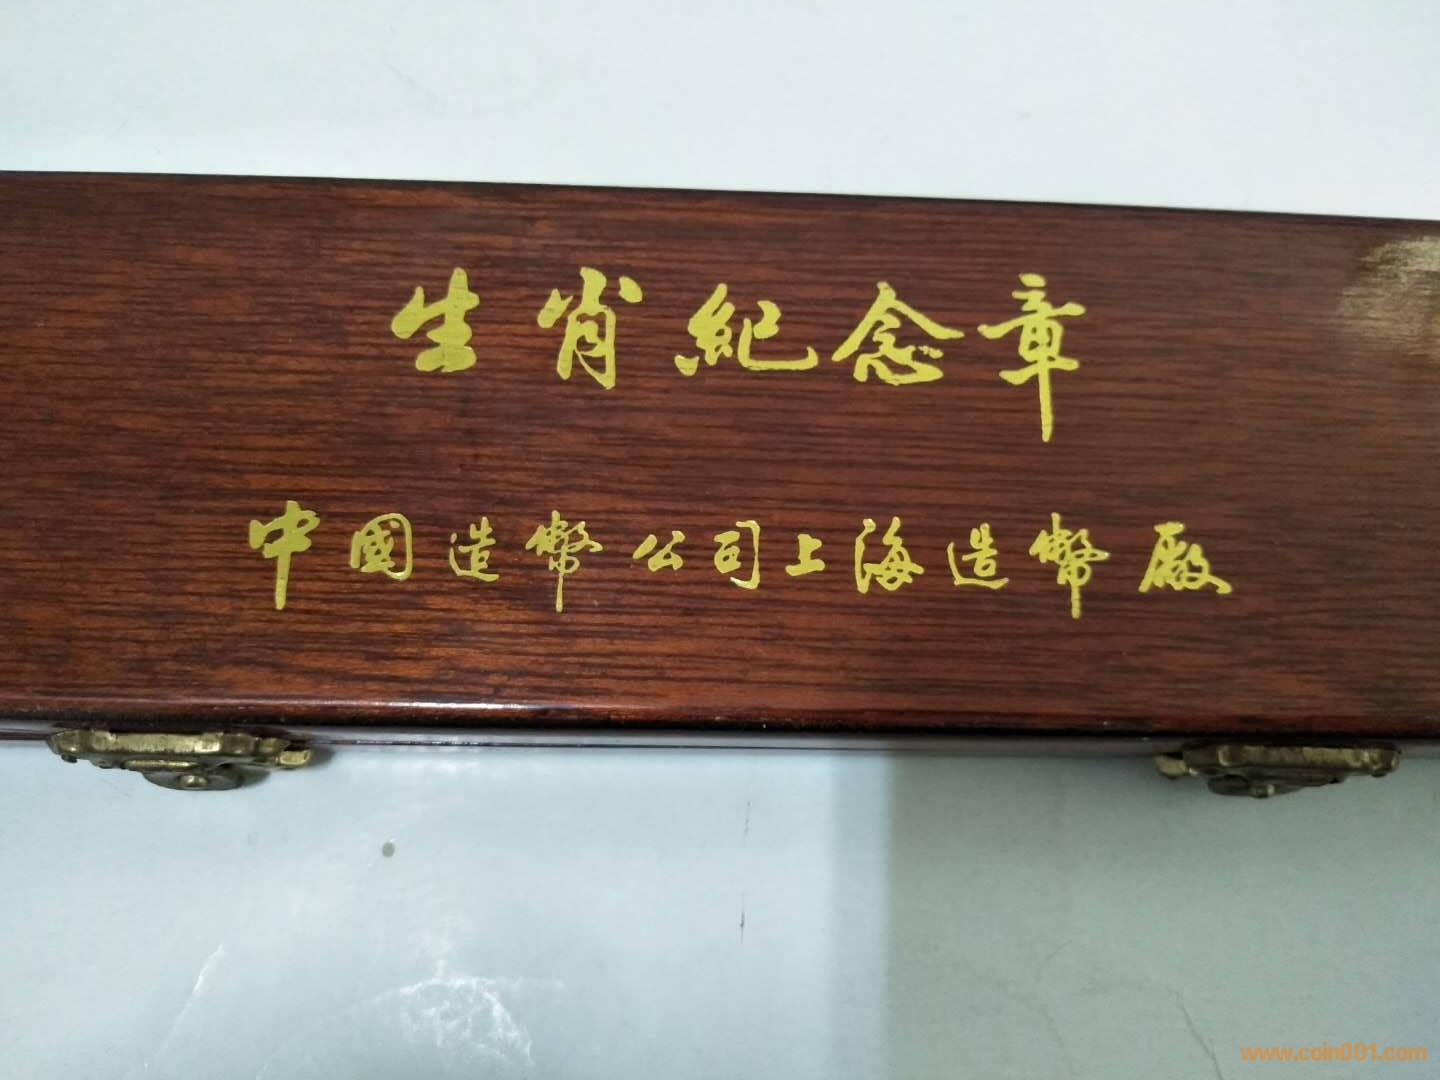 生肖紀念章
中國造幣公司上海造幣廠
www.coin001.com